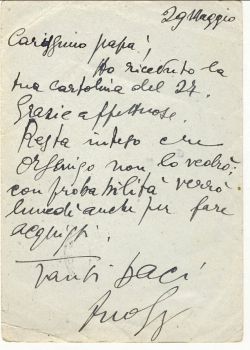 29 Maggio
Carissimo papà,
Ho ricevuto la
tua cartolina del 27.
Grazie affettuose.
Resta inteso che
Orsenigo non lo vedrò;
con probabilità verrò
lunedì anche per fare
acquisti.
Tanti baci